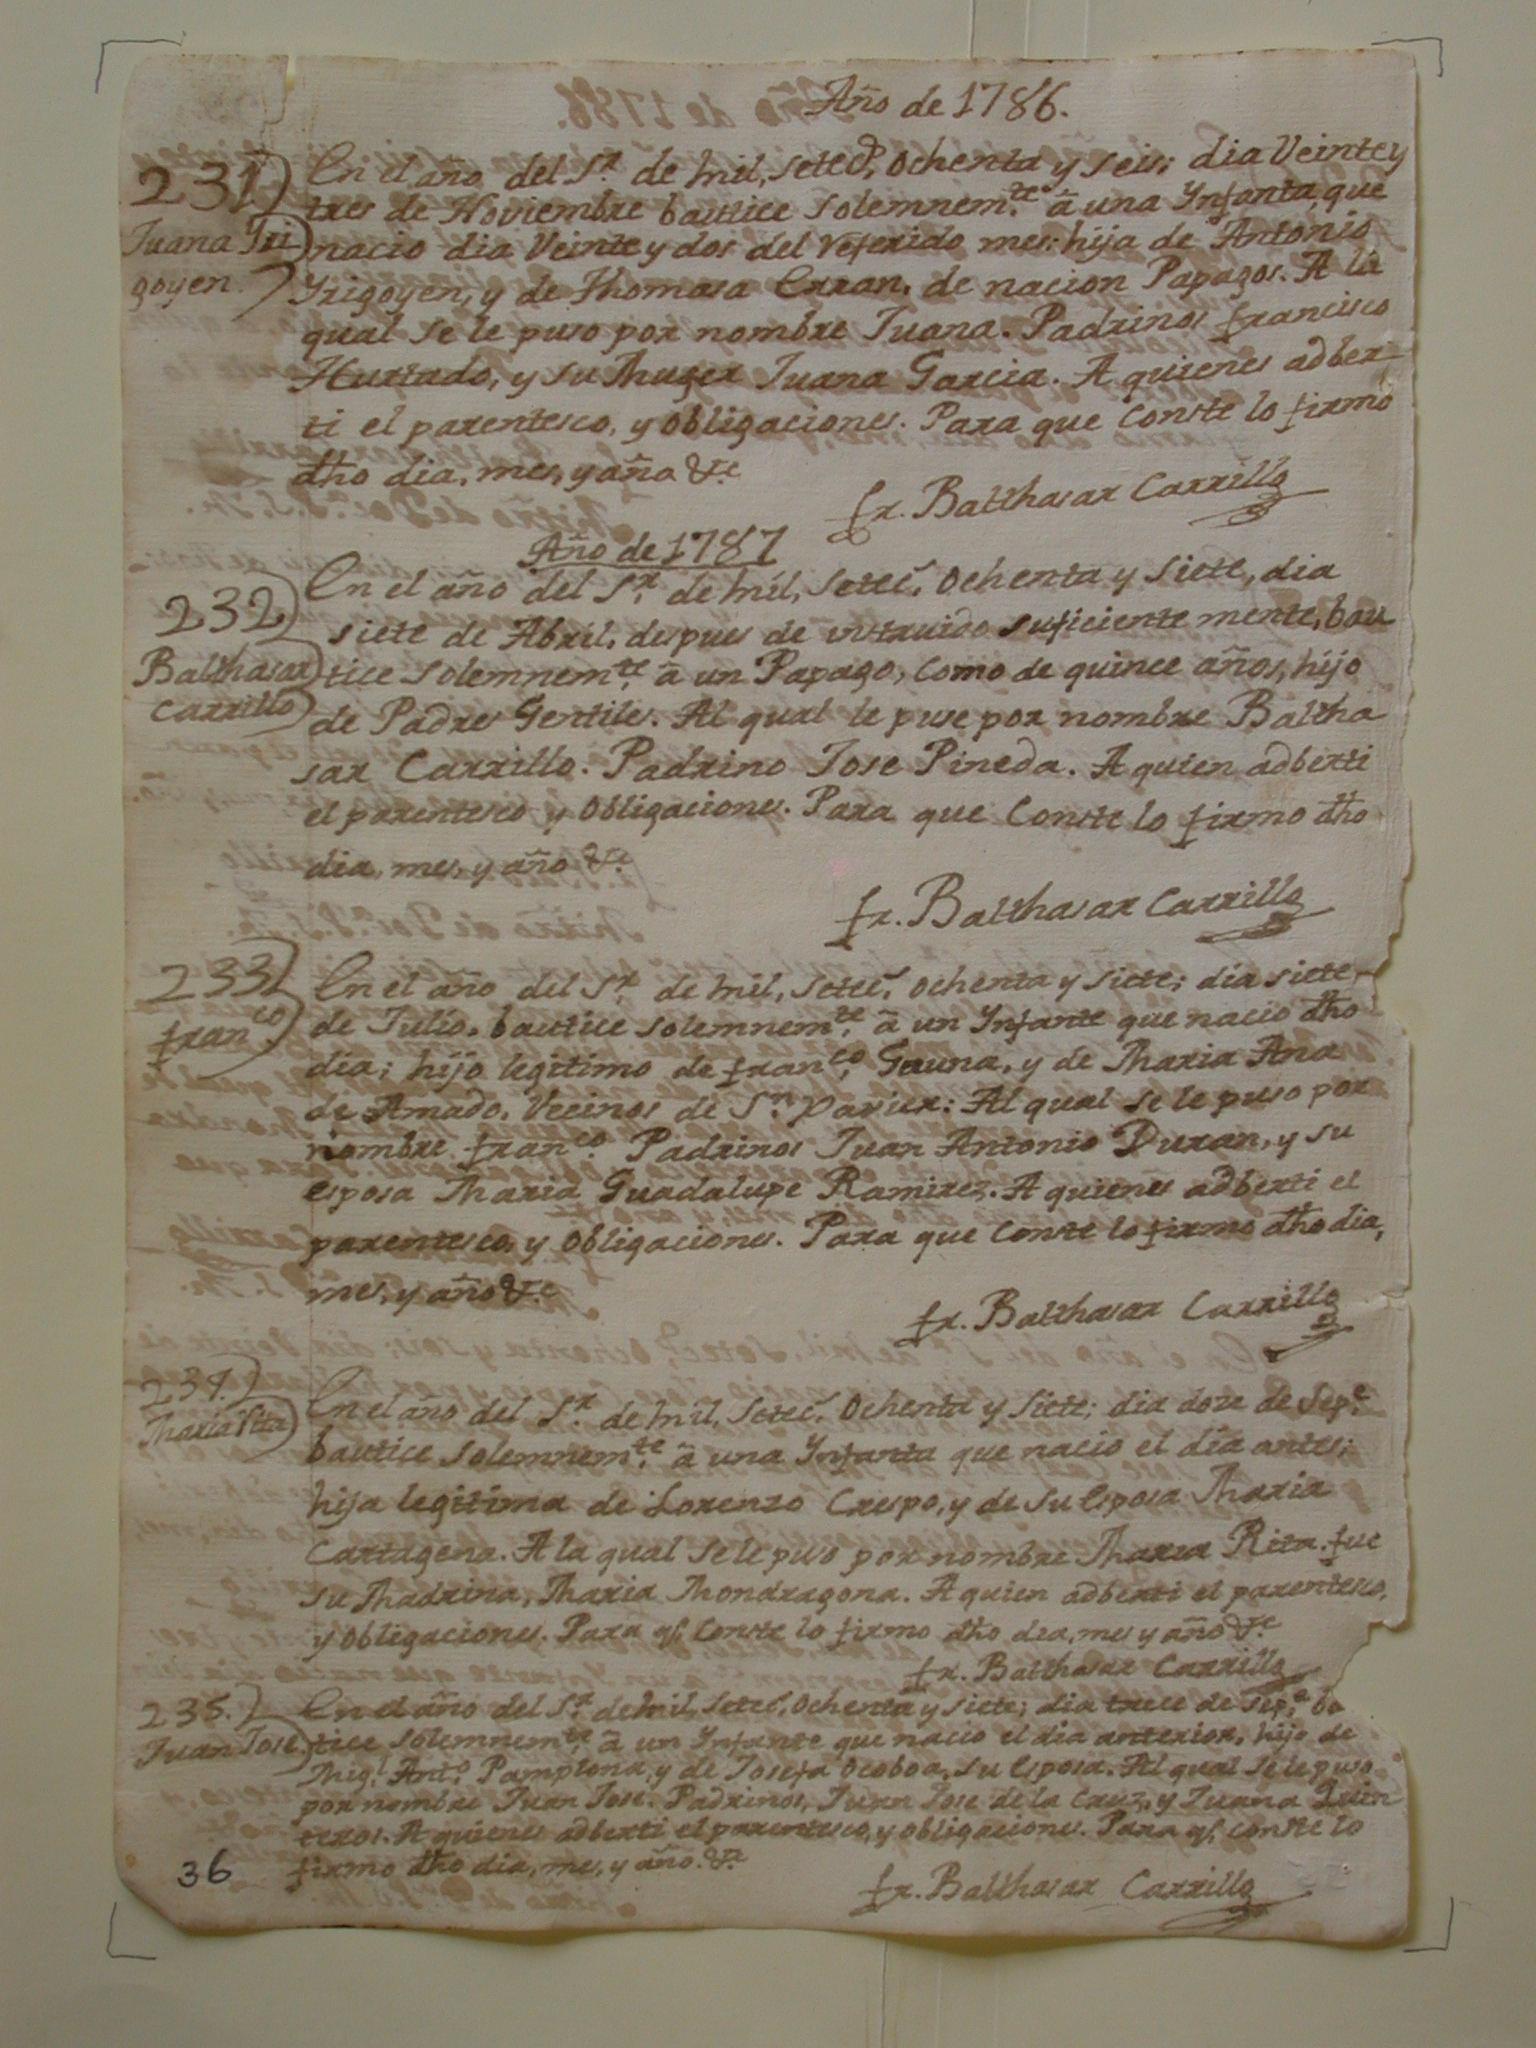 Año de 1786.
231)
Juana Yri
goyen.
En el año del Sr. de mil, setecs, ochenta y seis; dia Veinte y
tres de Noviembre bautice solemnemte. â una Ynfanta, que
nacio dia Veinte y dos del referido mes: hija de Antonio
Yrigoyen, y de Thomasa Erran, de nacion Papagos. A la
qual se le puso por nombre Juana. Padrinos francisco
Hurtado, y su Muger Juana Garcia. A quienes adber-
ti el parentesco, y obligaciones. Para que conste lo firmo
dho dia, mes, y año &c
fr. Balthasar Carrillo
Año de 1787
232)
Balthasar
Carrillo
En el año del Sr. de mil, setecs. ochenta y siete, dia
siete de Abril, despues de instruido suficiente mente, bau
tice solemnemte. â un Papago, como de quince años, hijo
de Padres Gentiles. Al qual le puse por nombre Baltha
sar Carrillo. Padrino Jose Pineda. A quien adberti
el parentesco y obligaciones. Para que conste lo firmo dho
dia, mes, y año &c
fr. Balthasar Carrillo
233)
franco.
En el año del Sr. de mil, setecs. ochenta y siete; dia siete
de Julio, bautice solemnemte. â un Ynfante que nacio dho
dia; hijo legitimo de franco. Gauna, y de Maria Ana
de Amado, Vecinos de Sn. Xavier: Al qual se le puso por
nombre franco. Padrinos Juan Antonio Duran, y su
esposa Maria Guadalupe Ramirez. A quienes adberti el
parentesco, y obligaciones. Para que conste lo firmo dho dia,
mes, y año &c
fr. Balthasar Carrillo
234.)
Maria Rita
En el año del Sr. de mil, setecs. ochenta y siete; dia doze de Sepe.
bautice solemnemte. â una Ynfanta que nacio el dia antes;
hija legitima de Lorenzo Crespo, y de su esposa Maria
Cartagena. A la qual se le puso por nombre Maria Rita. fue
su Madrina, Maria Mondragona. A quien adberti el parentesco,
y obligaciones. Para q. conste lo firmo dho dia, mes y año &c
fr. Balthasar Carrillo
235.)
Juan Jose.
En el año del Sr. de mil, setecs. ochenta y siete; dia trece de Sepe. ba
tice solemnemte. â un Ynfante que nacio el dia anterior, hijo de
Migl. Anto. Pamplona, y de Josefa Ocoboa, su esposa. Al qual se le puso
por nombre Juan Jose. Padrinos, Juan Jose de la Cruz, y Juana Quin
teros. A quienes adberti el parentesco, y obligaciones. Para q. conste lo
firmo dho dia, mes, y año. &c
fr. Balthasar Carrillo
36